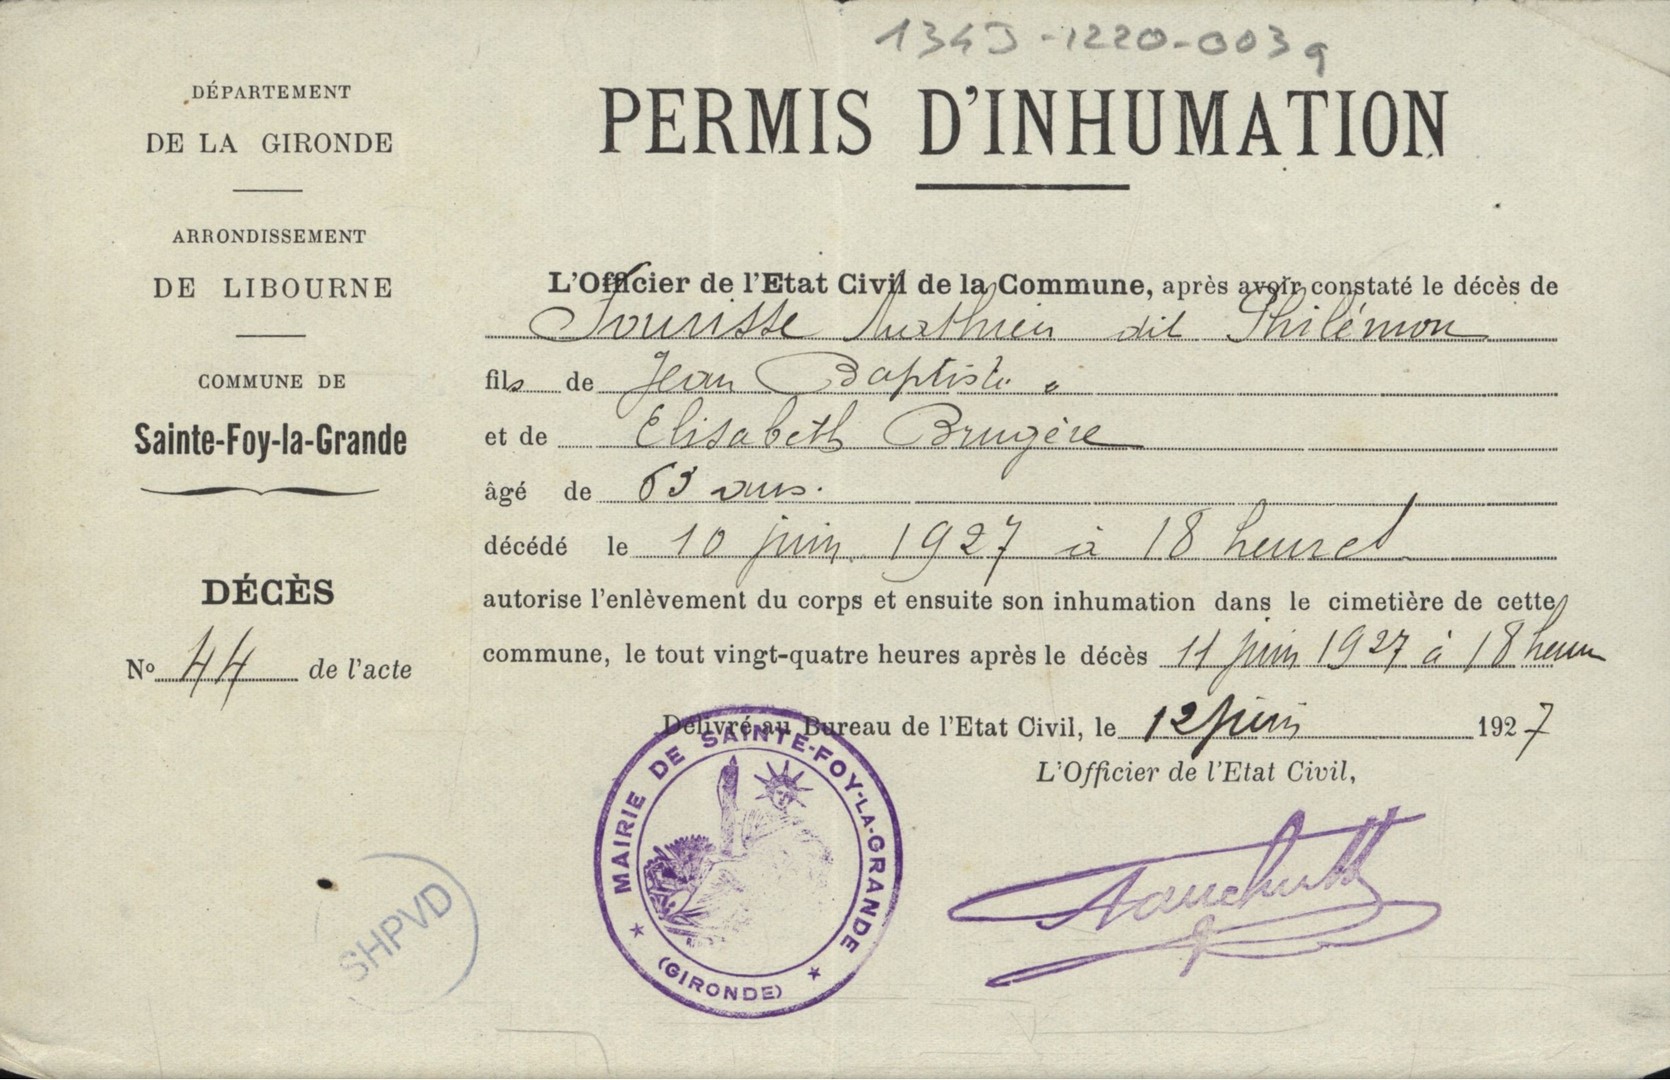 134J-1220-003a
DÉPARTEMENT
DE LA GIRONDE
ARRONDISSEMENT
DE LIBOURNE
COMMUNE DE
Sainte-Foy-la-Grande
DÉCÈS
No 44 de l'acte
PERMIS D'INHUMATION
L'Officier de l'Etat Civil de la Commune, après avoir constaté le décès de
Mathieu dit Philémon
fils de Jean Baptiste
et de Elisabeth Brugère
âgé de 63 ans.
décédé le 10 juin 1927 à 18 heures
autorise l'enlèvement du corps et ensuite son inhumation dans le cimetière de cette
commune, le tout vingt-quatre heures après le décès 11 juin 1927 à 18 heures
Délivré au Bureau de l'Etat Civil, le 12 juin 1927
L'Officier de l'Etat Civil,
MAIRIE DE SAINTE-FOY-LA-GRANDE
(GIRONDE)
SHPVD